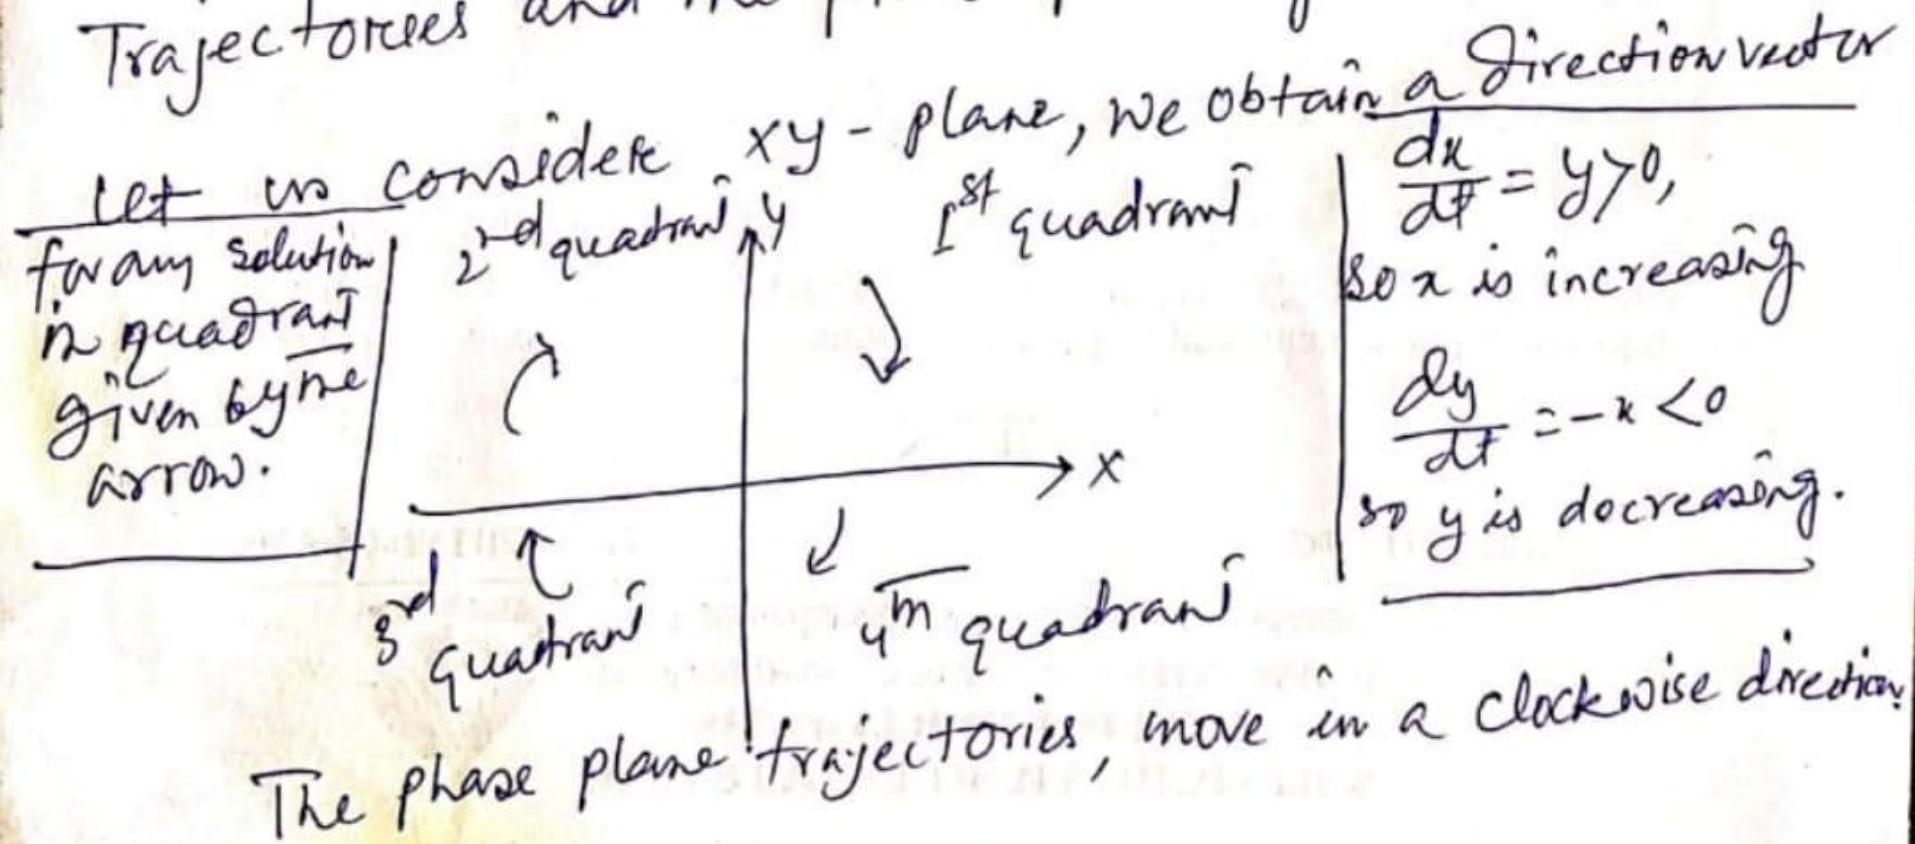 Trajectories and the phase
Let us consider xy - plane, we obtain a direction vector
for any solution
in quadrant
given by the
arrow.
2nd quadrant
y
1st quadrant
x
3rd
quadrant
4th quadrant
dx/dt = y>0,
so x is increasing
dy/dt = -x <0
so y is decreasing.
The phase plane trajectories, move in a clockwise direction.